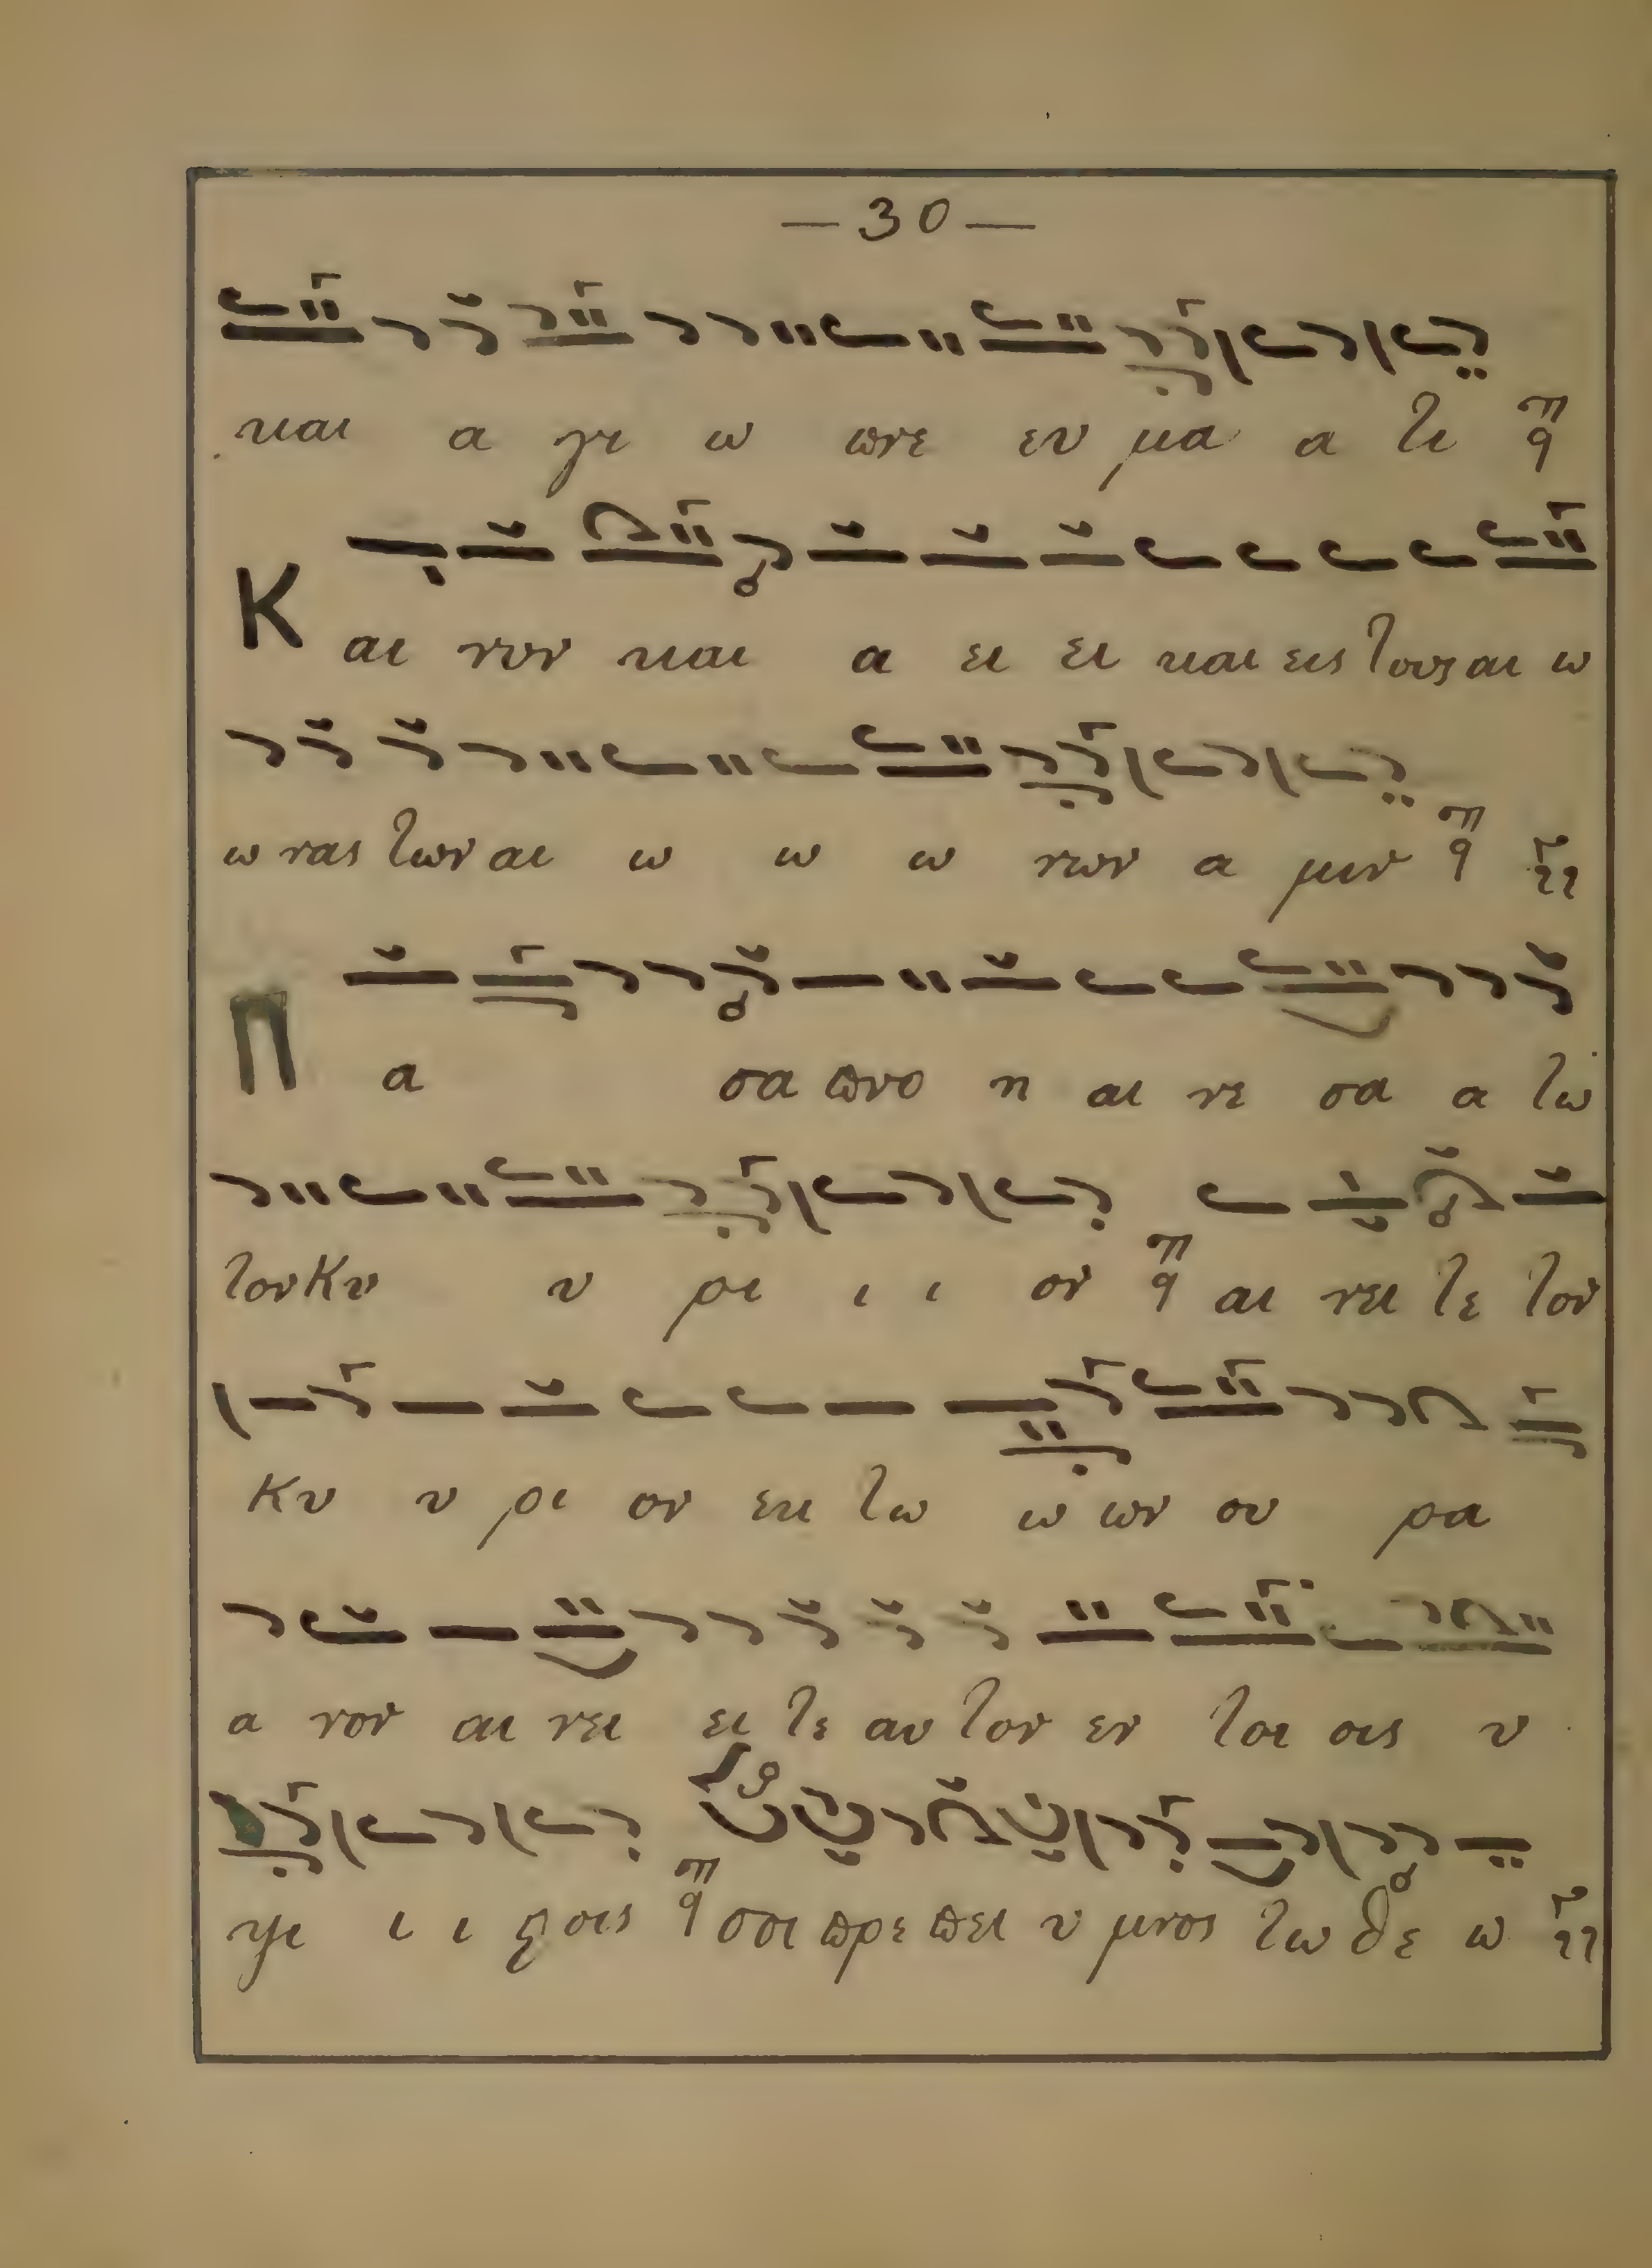 — 30 —
και α γι ω ϖνε ευ μα α τι
Και νυν και α ει ει και εις τους αι ω
ω νας των αι ω ω ω νων α μιν
Πα σα ϖνο η αι νε σα α τω
τον Κυ υ ρι ι ι ον αι νει τε τον
Κυ υ ρι ον εκ τω ω ων ου ρα
α νον αι νει ει τε αυ τον εν τοι οις υ
ψι ι ι ςοις σοι ϖρε ϖει υ μνος τω θε ω